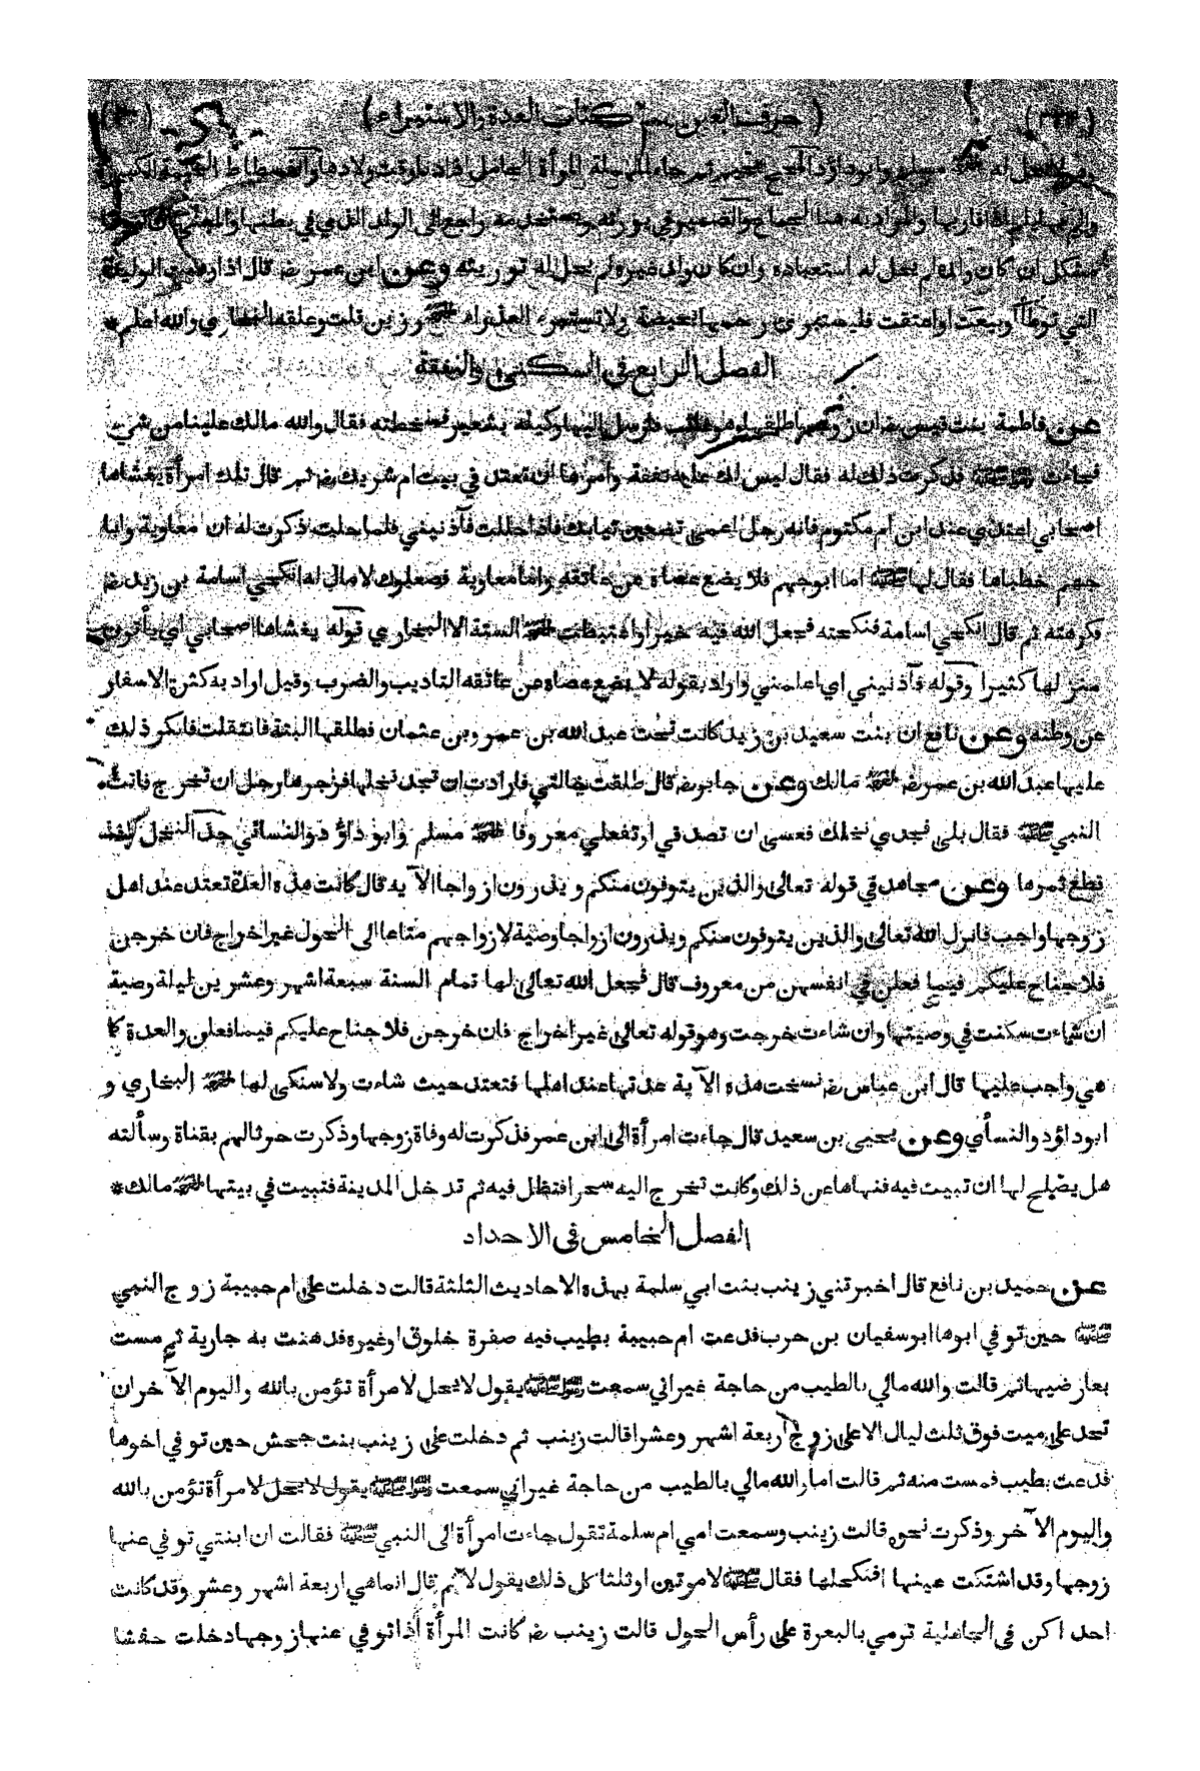 ( حرف العين كتاب العدة والاستبراء )
وهو لا يحل له مسلم وابو داؤد المجح بجيم ثم حاء المهملة المرأة الحامل اذا دنا وقت ولادها والفسطاط الخيمة الكبيرة
والمراد به هنا الجماع والضمير في يورثه ويستخدمه راجع الى الولد الذي في بطنها
مشكل ان كان ولده لم يحل له استعباده وان كان ولد غيره لم يحل له توريثه وعن ابن عمر رض قال اذا وهبت الوليدة
التي توطأ او بيعت او اعتقت فليستبرئ رحمها بحيضة ولا تستبرء العذراء اخرجه رزين قلت وعلقه البخاري والله اعلم *
الفصل الرابع في السكنى والنفقة
عن فاطمة بنت قيس رض ان زوجها طلقها وهو غائب فارسل اليها وكيله بشعير فسخطته فقال والله مالك علينا من شيء
فجاءت رسول الله صلى الله عليه وسلم فذكرت ذلك له فقال ليس لك عليه نفقة وامرها ان تعتد في بيت ام شريك رض ثم قال تلك امرأة يغشاها
اصحابي اعتدي عند ابن ام مكتوم فانه رجل اعمى تضعين ثيابك فاذا حللت فآذنيني فلما حلت ذكرت له ان معاوية وابا
جهم خطباها فقال لها صلى الله عليه وسلم اما ابو جهم فلا يضع عصاه عن عاتقه واما معاوية فصعلوك لا مال له انكحي اسامة بن زيد رض
فكرهته ثم قال انكحي اسامة فنكحته فجعل الله فيه خيرا واغتبطت اخرجه الستة الا البخاري قوله يغشاها اصحابي اي يأتون
منزلها كثيرا وقوله فآذنيني اي اعلمني واراد بقوله لا يضع عصاه عن عاتقه التاديب والضرب وقيل اراد به كثرة الاسفار
عن وطنه وعن نافع ان بنت سعيد بن زيد كانت تحت عبد الله بن عمرو بن عثمان فطلقها البتة فانتقلت فانكر ذلك
عليها عبد الله بن عمر رض اخرجه مالك وعن جابر رض قال طلقت خالتي فارادت ان تجد نخلها فزجرها رجل ان تخرج فاتت
النبي صلى الله عليه وسلم فقال بلى فجدي نخلك فعسى ان تصدقي او تفعلي معروفا اخرجه مسلم وابو داؤد والنسائي جد النخل
قطع ثمرها وعن مجاهد في قوله تعالى والذين يتوفون منكم ويذرون ازواجا الآية قال كانت هذه العدة تعتد عند اهل
زوجها واجب فانزل الله تعالى والذين يتوفون منكم ويذرون ازواجا وصية لازواجهم متاعا الى الحول غير اخراج فان خرجن
فلا جناح عليكم فيما فعلن في انفسهن من معروف قال فجعل الله تعالى لها تمام السنة سبعة اشهر وعشرين ليلة وصية
ان شاءت سكنت في وصيتها وان شاءت خرجت وهو قوله تعالى غير اخراج فان خرجن فلا جناح عليكم فيما فعلن والعدة كما
هي واجب عليها قال ابن عباس رض نسخت هذه الآية عدتها عند اهلها فتعتد حيث شاءت ولا سكنى لها اخرجه البخاري و
ابو داؤد والنسأي وعن يحيى بن سعيد قال جاءت امرأة الى ابن عمر فذكرت له وفاة زوجها وذكرت حرثا لهم بقناة وسألته
هل يصلح لها ان تبيت فيه فنهاها عن ذلك وكانت تخرج اليه سحرا فتظل فيه ثم تدخل المدينة فتبيت في بيتها اخرجه مالك *
الفصل الخامس في الاحداد
عن حميد بن نافع قال اخبرتني زينب بنت ابي سلمة بهذه الاحاديث الثلثة قالت دخلت على ام حبيبة زوج النبي
صلى الله عليه وسلم حين توفي ابوها ابو سفيان بن حرب فدعت ام حبيبة بطيب فيه صفرة خلوق او غيره فدهنت به جارية ثم مست
بعارضيها ثم قالت والله مالي بالطيب من حاجة غير اني سمعت رسول الله صلى الله عليه وسلم يقول لا يحل لامرأة تؤمن بالله واليوم الآخر ان
تحد على ميت فوق ثلث ليال الا على زوج اربعة اشهر وعشرا قالت زينب ثم دخلت على زينب بنت جحش حين توفي اخوها
فدعت بطيب فمست منه ثم قالت اما والله مالي بالطيب من حاجة غير اني سمعت رسول الله صلى الله عليه وسلم يقول لا يحل لامرأة تؤمن بالله
واليوم الآخر وذكرت نحوه قالت زينب وسمعت امي ام سلمة تقول جاءت امرأة الى النبي صلى الله عليه وسلم فقالت ان ابنتي توفي عنها
زوجها وقد اشتكت عينها افنكحلها فقال صلى الله عليه وسلم لا مرتين او ثلثا كل ذلك يقول لا ثم قال انما هي اربعة اشهر وعشر وقد كانت
احداكن في الجاهلية ترمي بالبعرة على رأس الحول قالت زينب رض كانت المرأة اذا توفي عنها زوجها دخلت حفشا